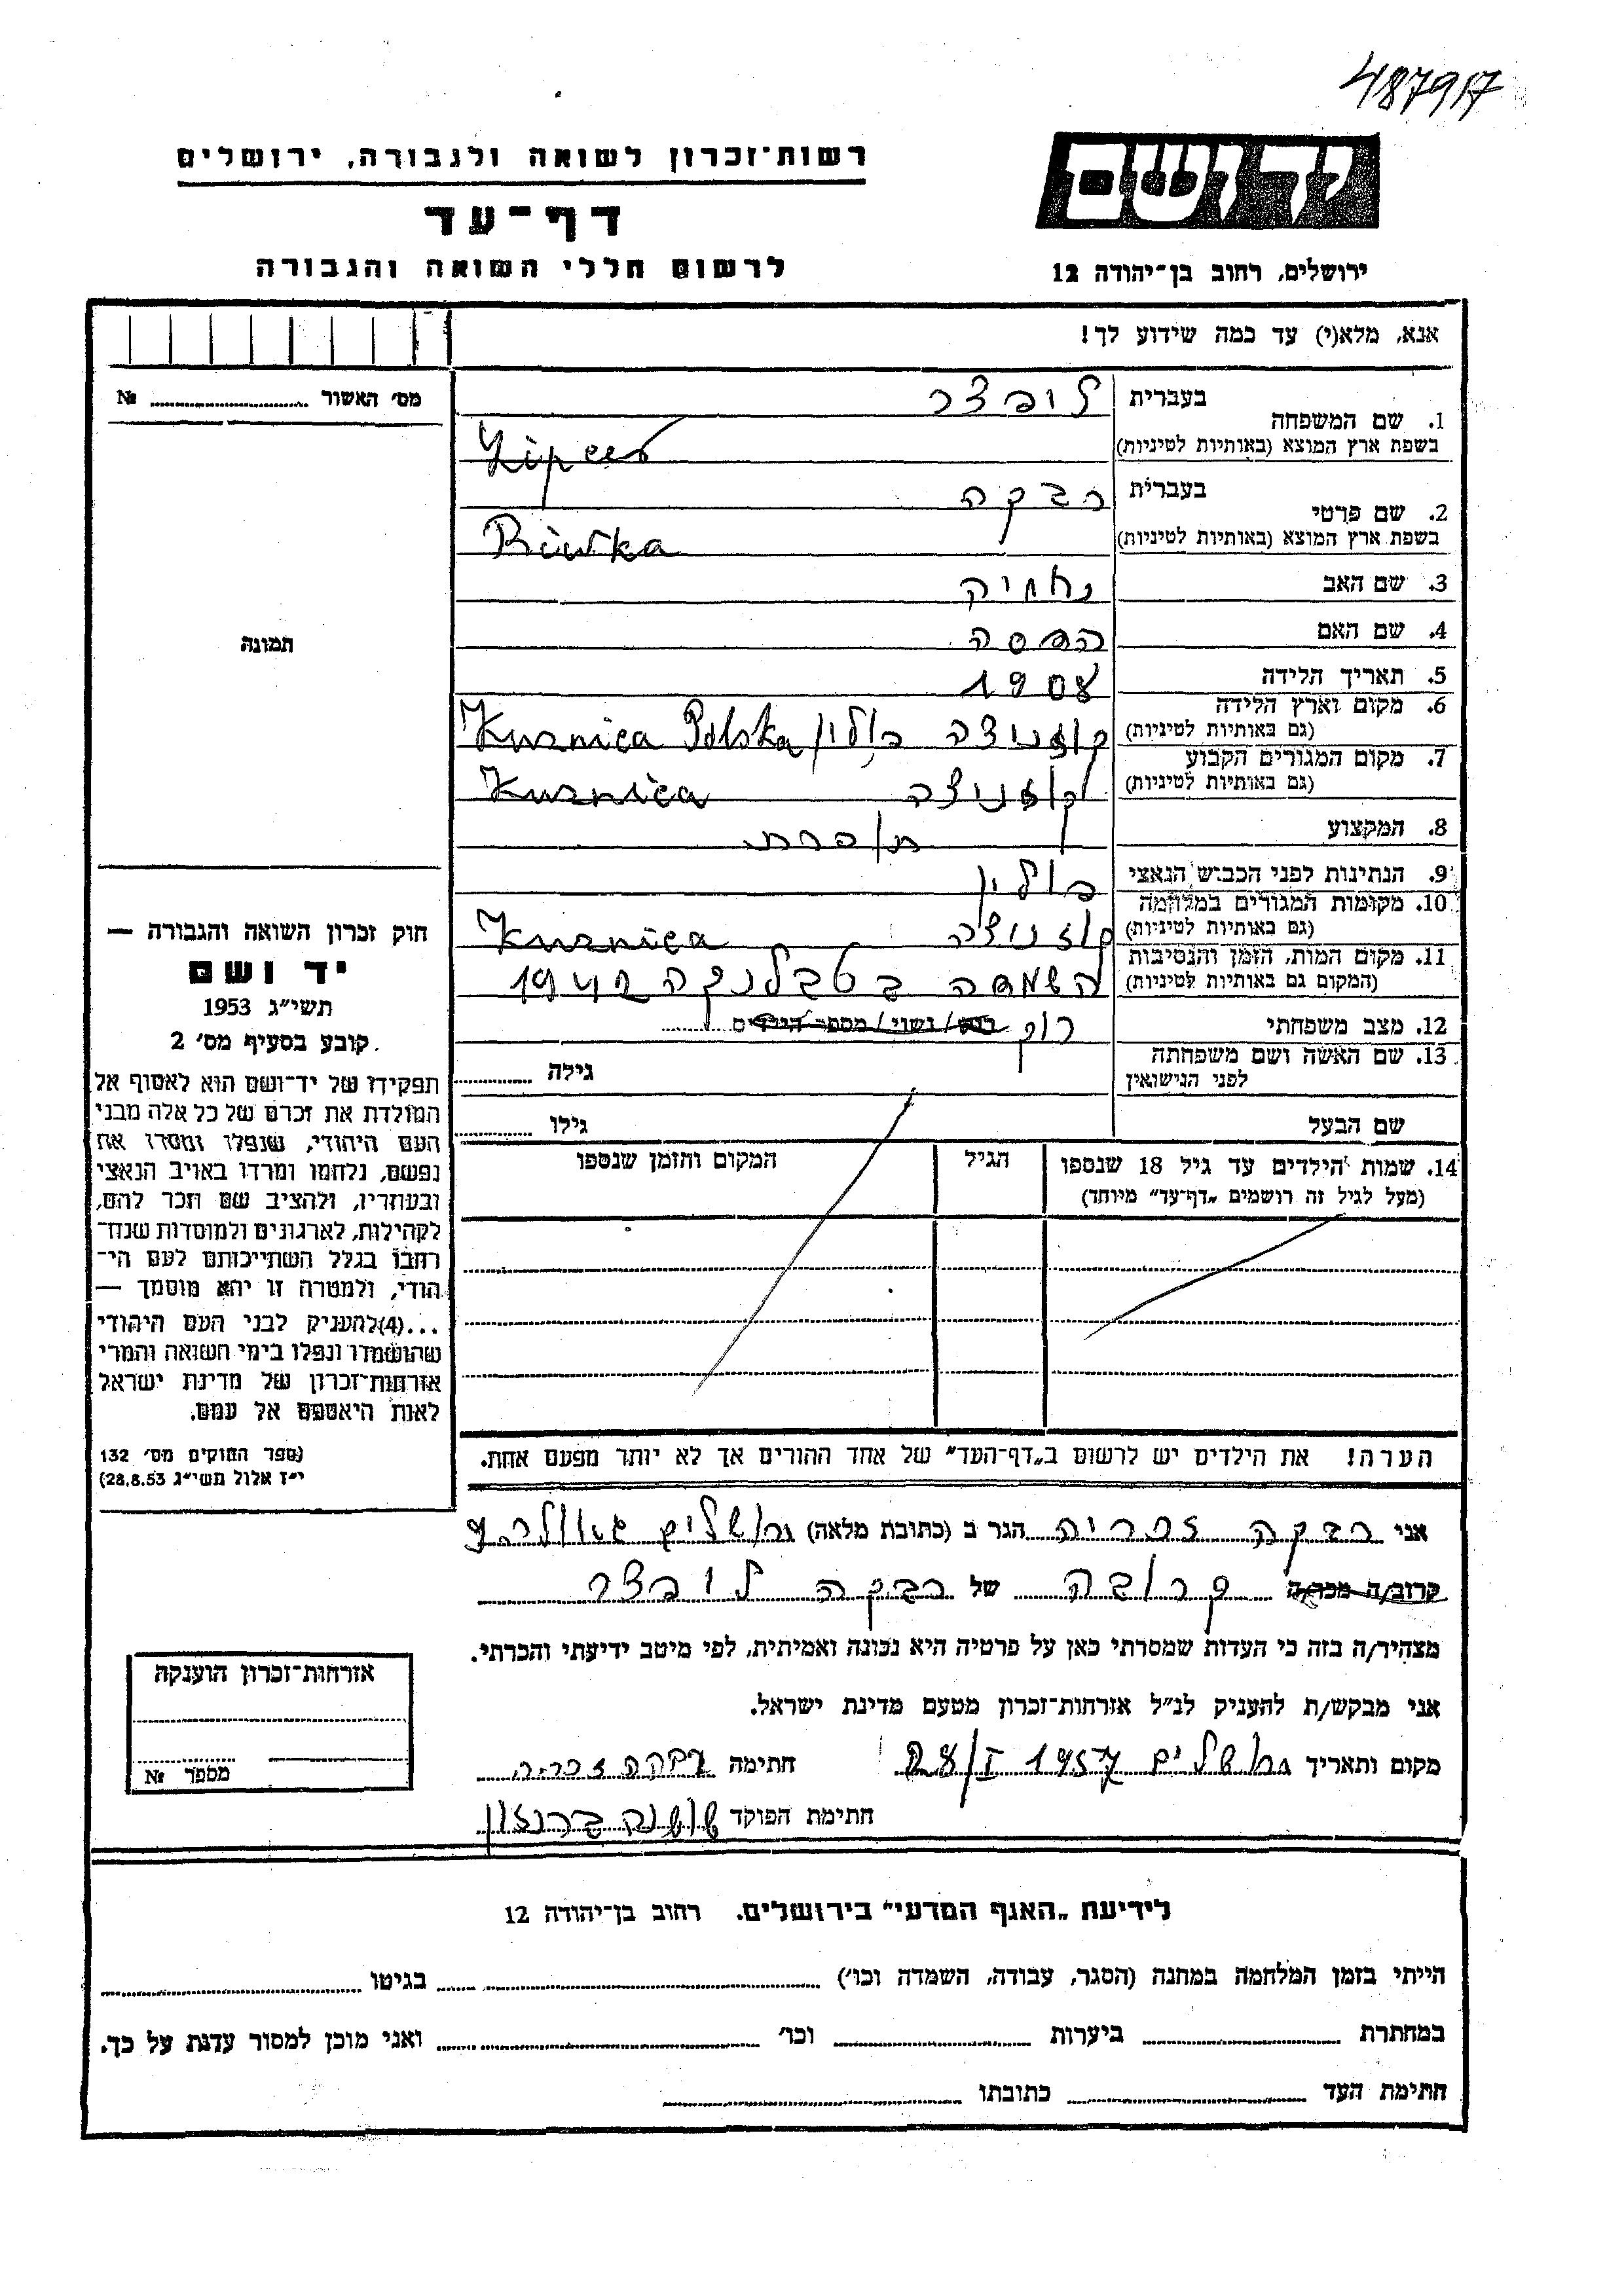 487917
רשות־זכרון לשואה ולגבורה, ירושלים
יד ושם
דף־עד
לרשום חללי השואה והגבורה
ירושלים, רחוב בן־יהודה 12
אנא, מלא(י) עד כמה שידוע לך!
מס' האשור № 
1. שם המשפחה בעברית ליפצר
בשפת ארץ המוצא (באותיות לטיניות) Lipcer
2. שם פרטי בעברית רבקה
בשפת ארץ המוצא (באותיות לטיניות) Riwka
3. שם האב
4. שם האם
5. תאריך הלידה 1908
6. מקום וארץ הלידה (גם באותיות לטיניות) קוזניצה פולין Kuznica Polska
7. מקום המגורים הקבוע (גם באותיות לטיניות) קוזניצה Kuznica
8. המקצוע תופרת
9. הנתינות לפני הכבוש הנאצי פולין
10. מקומות המגורים במלחמה (גם באותיות לטיניות) קוזניצה Kuznica
11. מקום המות, הזמן והנסיבות (המקום גם באותיות לטיניות) השמדה בטבלנקה 1942
12. מצב משפחתי רווק / נשוי / מספר הילדים רוק
13. שם האשה ושם משפחתה לפני הנישואין גילה
שם הבעל גילו
14. שמות הילדים עד גיל 18 שנספו (מעל לגיל זה רושמים „דף־עד" מיוחד) הגיל המקום והזמן שנספו
תמונה
חוק זכרון השואה והגבורה —
יד ושם
תשי"ג 1953
קובע בסעיף מס' 2
תפקידו של יד־ושם הוא לאסוף אל
המולדת את זכרם של כל אלה מבני
העם היהודי, שנפלו ומסרו את
נפשם, נלחמו ומרדו באויב הנאצי
ובעוזריו, ולהציב שם וזכר להם,
לקהילות, לארגונים ולמוסדות שנח־
רבו בגלל השתייכותם לעם הי־
הודי, ולמטרה זו יהא מוסמך —
...(4) להעניק לבני העם היהודי
שהושמדו ונפלו בימי השואה והמרי
אזרחות־זכרון של מדינת ישראל
לאות היאספם אל עמם.
(ספר החוקים מס' 132
י"ז אלול תשי"ג 28.8.53)
הערה! את הילדים יש לרשום ב„דף־העד" של אחד ההורים אך לא יותר מפעם אחת.
אני רבקה זכריה הגר ב (כתובת מלאה) ירושלים
קרוב/ה מכר/ה קרובה של רבקה ליפצר
מצהיר/ה בזה כי העדות שמסרתי כאן על פרטיה היא נכונה ואמיתית, לפי מיטב ידיעתי והכרתי.
אני מבקש/ת להעניק לנ"ל אזרחות־זכרון מטעם מדינת ישראל.
מקום ותאריך ירושלים 28/I 1957 חתימה רבקה זכריה
חתימת הפוקד
אזרחות־זכרון הוענקה
מספר №
לידיעת „האגף המדעי" בירושלים, רחוב בן־יהודה 12
הייתי בזמן המלחמה במחנה (הסגר, עבודה, השמדה וכו') בגיטו
במחתרת ביערות וכו' ואני מוכן למסור עדות על כך.
חתימת העד כתובתו